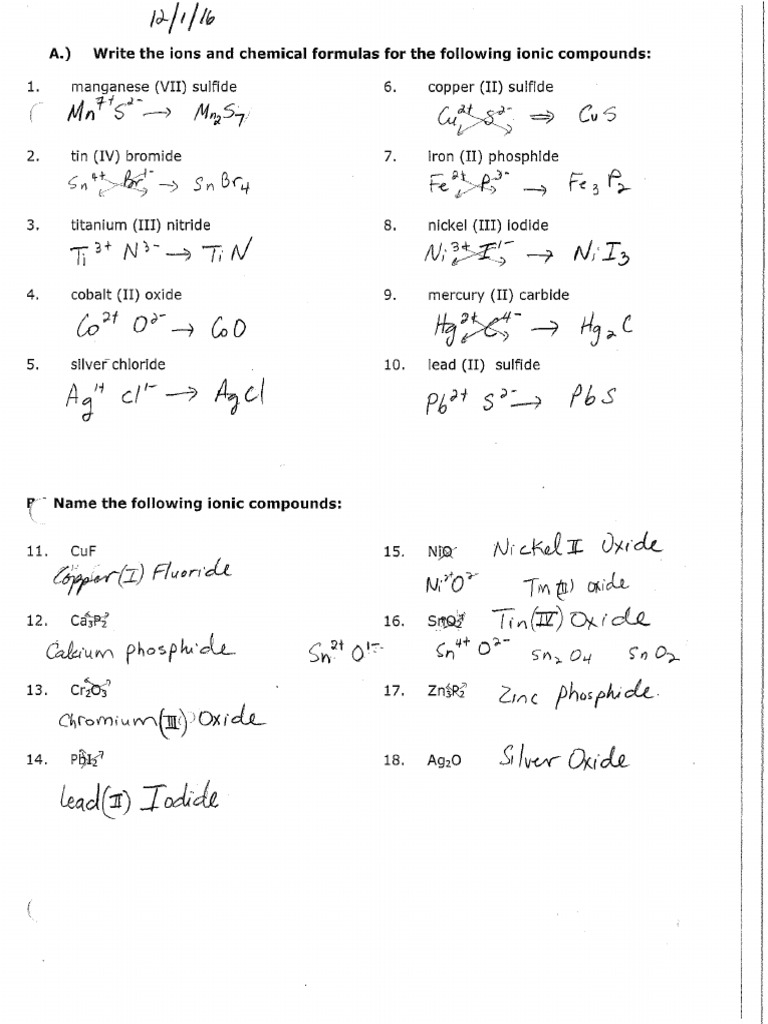 12/1/16
A.) Write the ions and chemical formulas for the following ionic compounds:
1. manganese (VII) sulfide
Mn⁷⁺ S²⁻ → Mn₂S₇
2. tin (IV) bromide
Sn⁴⁺ Br¹⁻ → SnBr₄
3. titanium (III) nitride
Ti³⁺ N³⁻ → TiN
4. cobalt (II) oxide
Co²⁺ O²⁻ → CoO
5. silver chloride
Ag¹⁺ Cl¹⁻ → AgCl
6. copper (II) sulfide
Cu²⁺ S²⁻ ⇒ CuS
7. iron (II) phosphide
Fe²⁺ P³⁻ → Fe₃P₂
8. nickel (III) iodide
Ni³⁺ I¹⁻ → NiI₃
9. mercury (II) carbide
Hg²⁺ C⁴⁻ → Hg₂C
10. lead (II) sulfide
Pb²⁺ S²⁻ → PbS
Name the following ionic compounds:
11. CuF
Copper (I) Fluoride
12. Ca₃P₂
Calcium phosphide
13. Cr₂O₃
Chromium (III) Oxide
14. PbI₂
Lead (II) Iodide
15. NiO Nickel II Oxide
Ni²⁺O²⁻ Tin (II) oxide
16. SnO₂ Tin (IV) Oxide
Sn²⁺ O¹⁻ Sn⁴⁺ O²⁻ Sn₂O₄ SnO₂
17. Zn₃P₂ Zinc phosphide.
18. Ag₂O Silver Oxide